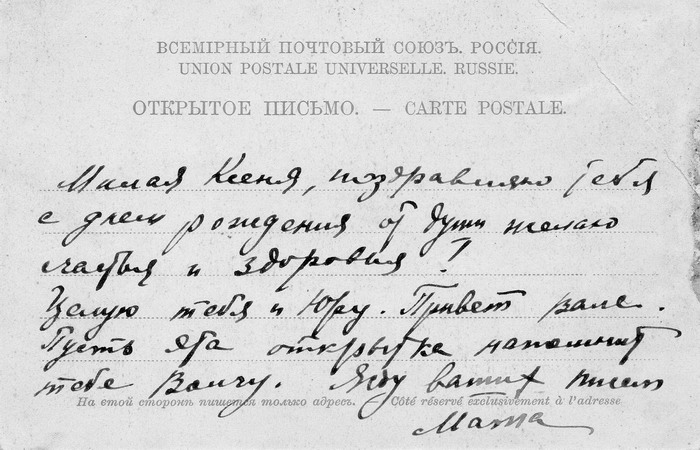 ВСЕМІРНЫЙ ПОЧТОВЫЙ СОЮЗЪ. РОССІЯ.
UNION POSTALE UNIVERSELLE. RUSSIE.
ОТКРЫТОЕ ПИСЬМО. — CARTE POSTALE.
Милая Ксеня, поздравляю тебя
с днем рождения от души желаю
счастья и здоровья!
Целую тебя и Юру. Привет Вале.
Пусть эта открытка напомнит
тебе. Жду ваших писем
На етой сторонѣ пишется только адресъ. — Côté réservé exclusivement à l'adresse